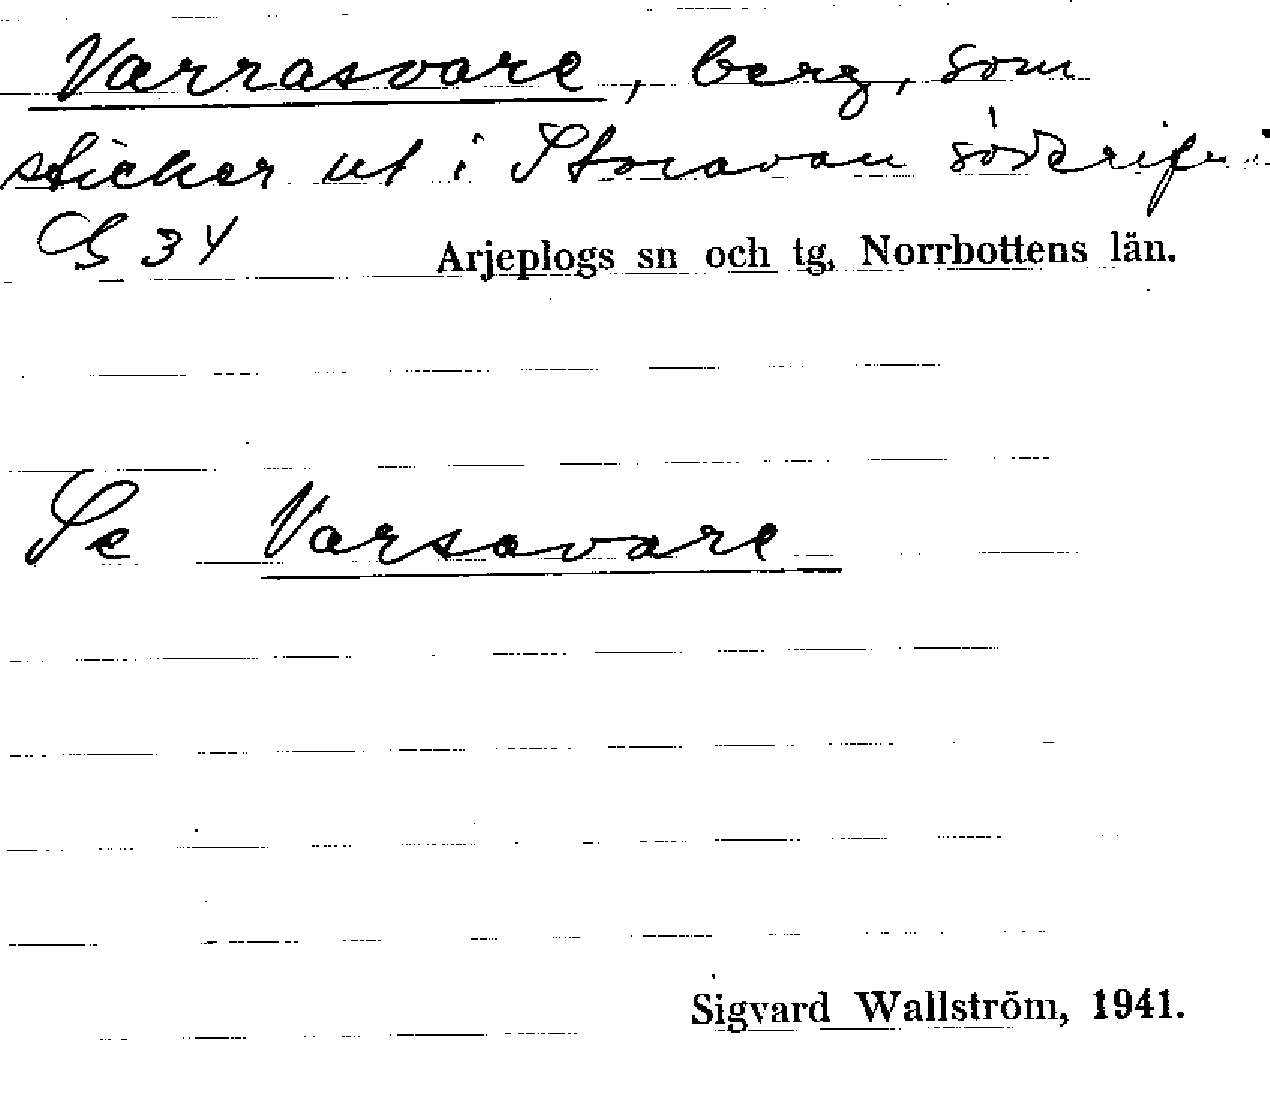 Varrasvare, berg, som
sticker ut i Storavan söderifr.
34
Arjeplogs sn och tg, Norrbottens län.
Se Varsavare
Sigvard Wallström, 1941.